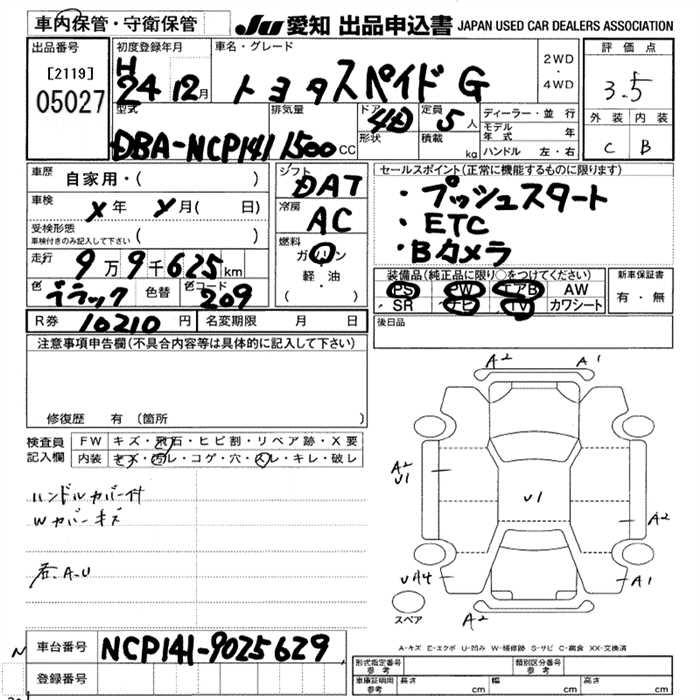 車内保管・守衛保管
JU 愛知 出品申込書 JAPAN USED CAR DEALERS ASSOCIATION
出品番号
[2119]
05027
初度登録年月
H
24 12月
車名・グレード
トヨタスペイド G
2WD
・
4WD
評価点
3.5
外装 内装
C B
型式
DBA-NCP141
排気量
1500cc
ドア
4D
形状
定員
5人
積載
kg
ディーラー・並行
モデル年式 年
ハンドル 左・右
車歴
自家用・( )
車検
X年 Y月( 日)
受検形態
車検付きのみ記入して下さい ( )
走行
9万9千625km
色
ブラック
色替
色コード
209
シフト
DAT
冷房
AC
燃料
ガソリン
軽・油
( )
セールスポイント(正常に機能するものに限ります)
・プッシュスタート
・ETC
・Bカメラ
装備品(純正品に限り○をつけてください)
PS PW エアB AW
SR ナビ TV カワシート
新車保証書
有・無
後日品
R券 10210円
名変期限 月 日
注意事項申告欄(不具合内容等は具体的に記入して下さい)
修復歴 有 (箇所 )
検査員
記入欄
FW キズ・飛石・ヒビ割・リペア跡・X要
内装 キズ・汚レ・コゲ・穴・スレ・キレ・破レ
ハンドルカバー付
Wカバーキズ
A2 A1
A2
U1
U1
A2
UA4
A1
A2
スペア
A-キズ E-エクボ U-凹み W-補修跡 S-サビ C-腐食 XX-交換済
車台番号
NCP141-9025629
登録番号
形式指定番号
参考
類別区分番号
参考
車庫証明用
参考
長さ cm 幅 cm 高さ cm